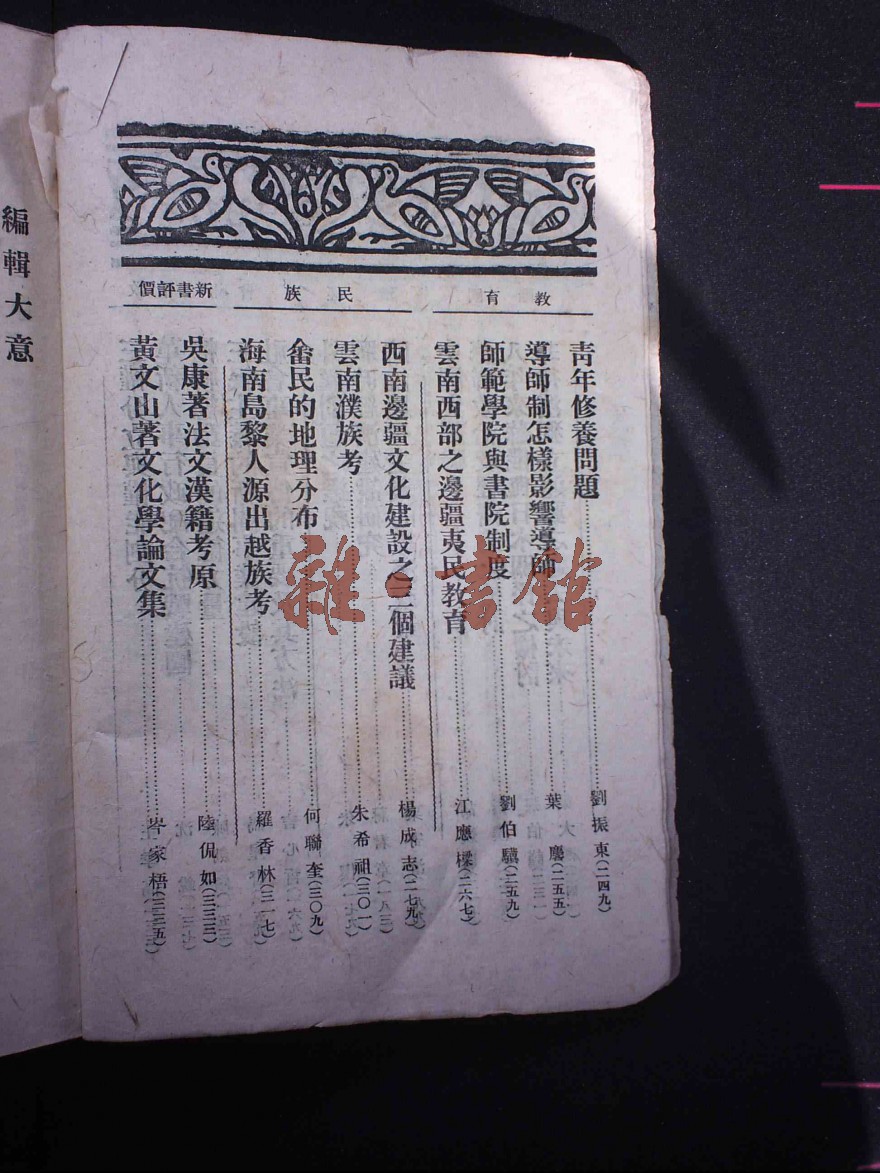 教育
青年修養問題 劉振東(二四九)
導師制怎樣影響導師 葉麐(二五五)
師範學院與書院制度 劉伯驥(二五九)
雲南西部之邊疆夷民教育 江應樑(二六七)
民族
西南邊疆文化建設之三個建議 楊成志(二七九)
雲南濮族考 朱希祖(三〇一)
畲民的地理分布 何聯奎(三〇九)
海南島黎人源出越族考 羅香林(三一七)
新書評價
吳康著法文漢籍考原 陸侃如(三三三)
黃文山著文化學論文集 岑家梧(三三五)
編輯大意
雜·書館